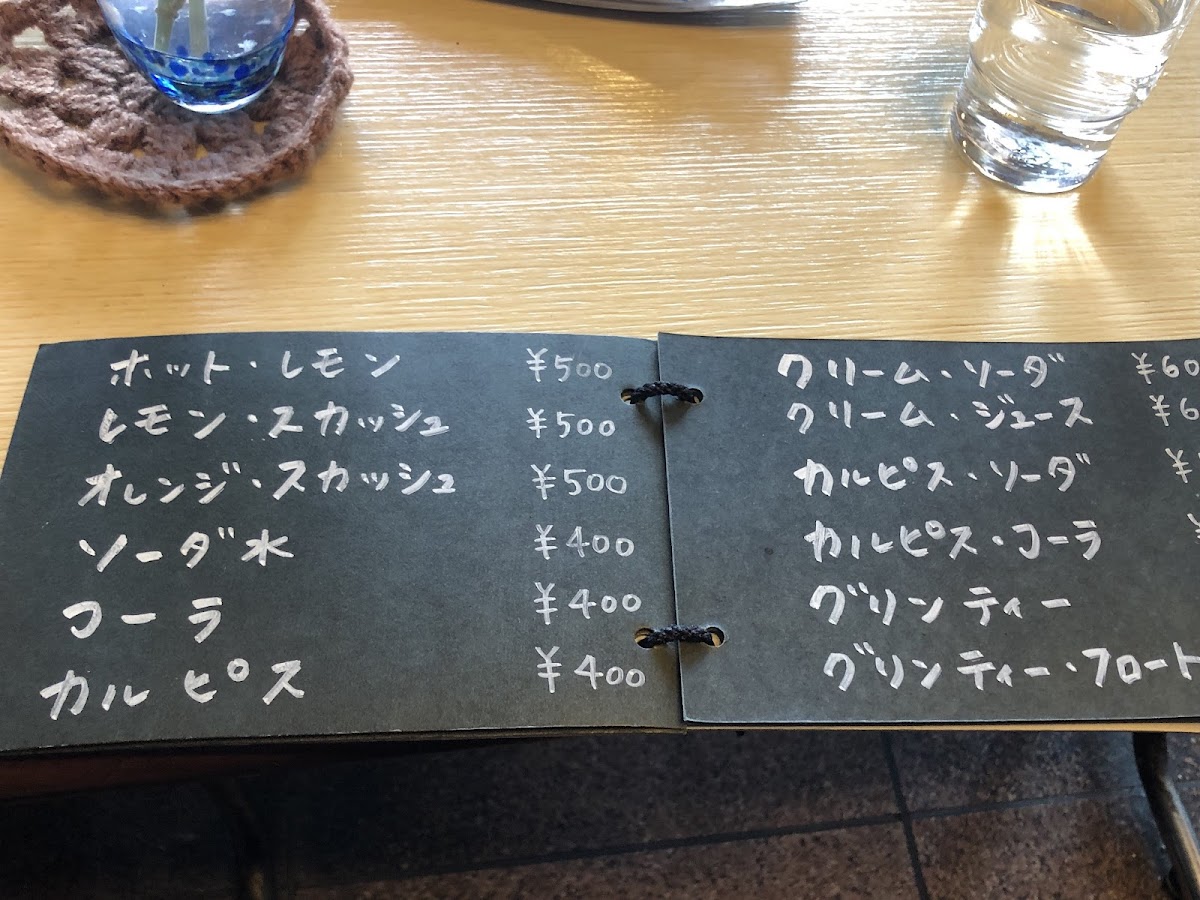 ホット・レモン ¥500
レモン・スカッシュ ¥500
オレンジ・スカッシュ ¥500
ソーダ水 ¥400
コーラ ¥400
カルピス ¥400
クリーム・ソーダ
クリーム・ジュース
カルピス・ソーダ
カルピス・コーラ
グリンティー
グリンティー・フロート